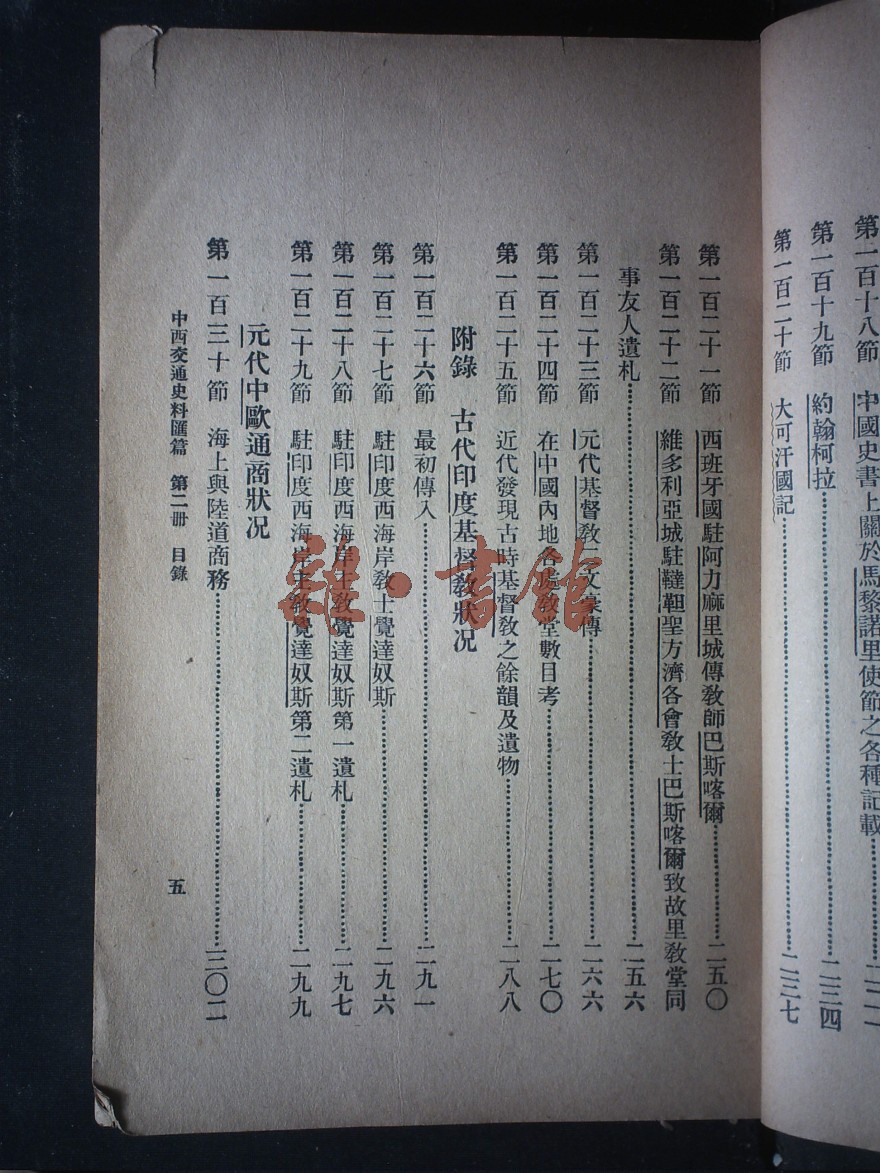 第一百十八節　中國史書上關於馬黎諾里使節之各種記載……
第一百十九節　約翰柯拉……二三四
第一百二十節　大可汗國記……二三七
第一百二十一節　西班牙國駐阿力麻里城傳敎師巴斯喀爾……二五〇
第一百二十二節　維多利亞城駐韃靼聖方濟各會敎士巴斯喀爾致故里敎堂同
事友人遺札……二五六
第一百二十三節　元代基督敎二文豪傳……二六六
第一百二十四節　在中國內地各處敎堂數目考……二七〇
第一百二十五節　近代發現古時基督敎之餘韻及遺物……二八八
附錄　古代印度基督敎狀况
第一百二十六節　最初傳入……二九一
第一百二十七節　駐印度西海岸敎士覺達奴斯……二九六
第一百二十八節　駐印度西海岸主敎覺達奴斯第一遺札……二九七
第一百二十九節　駐印度西海岸主敎覺達奴斯第二遺札……二九九
元代中歐通商狀况
第一百三十節　海上與陸道商務……三〇二
中西交通史料匯篇　第二册　目錄　五
雜·書館